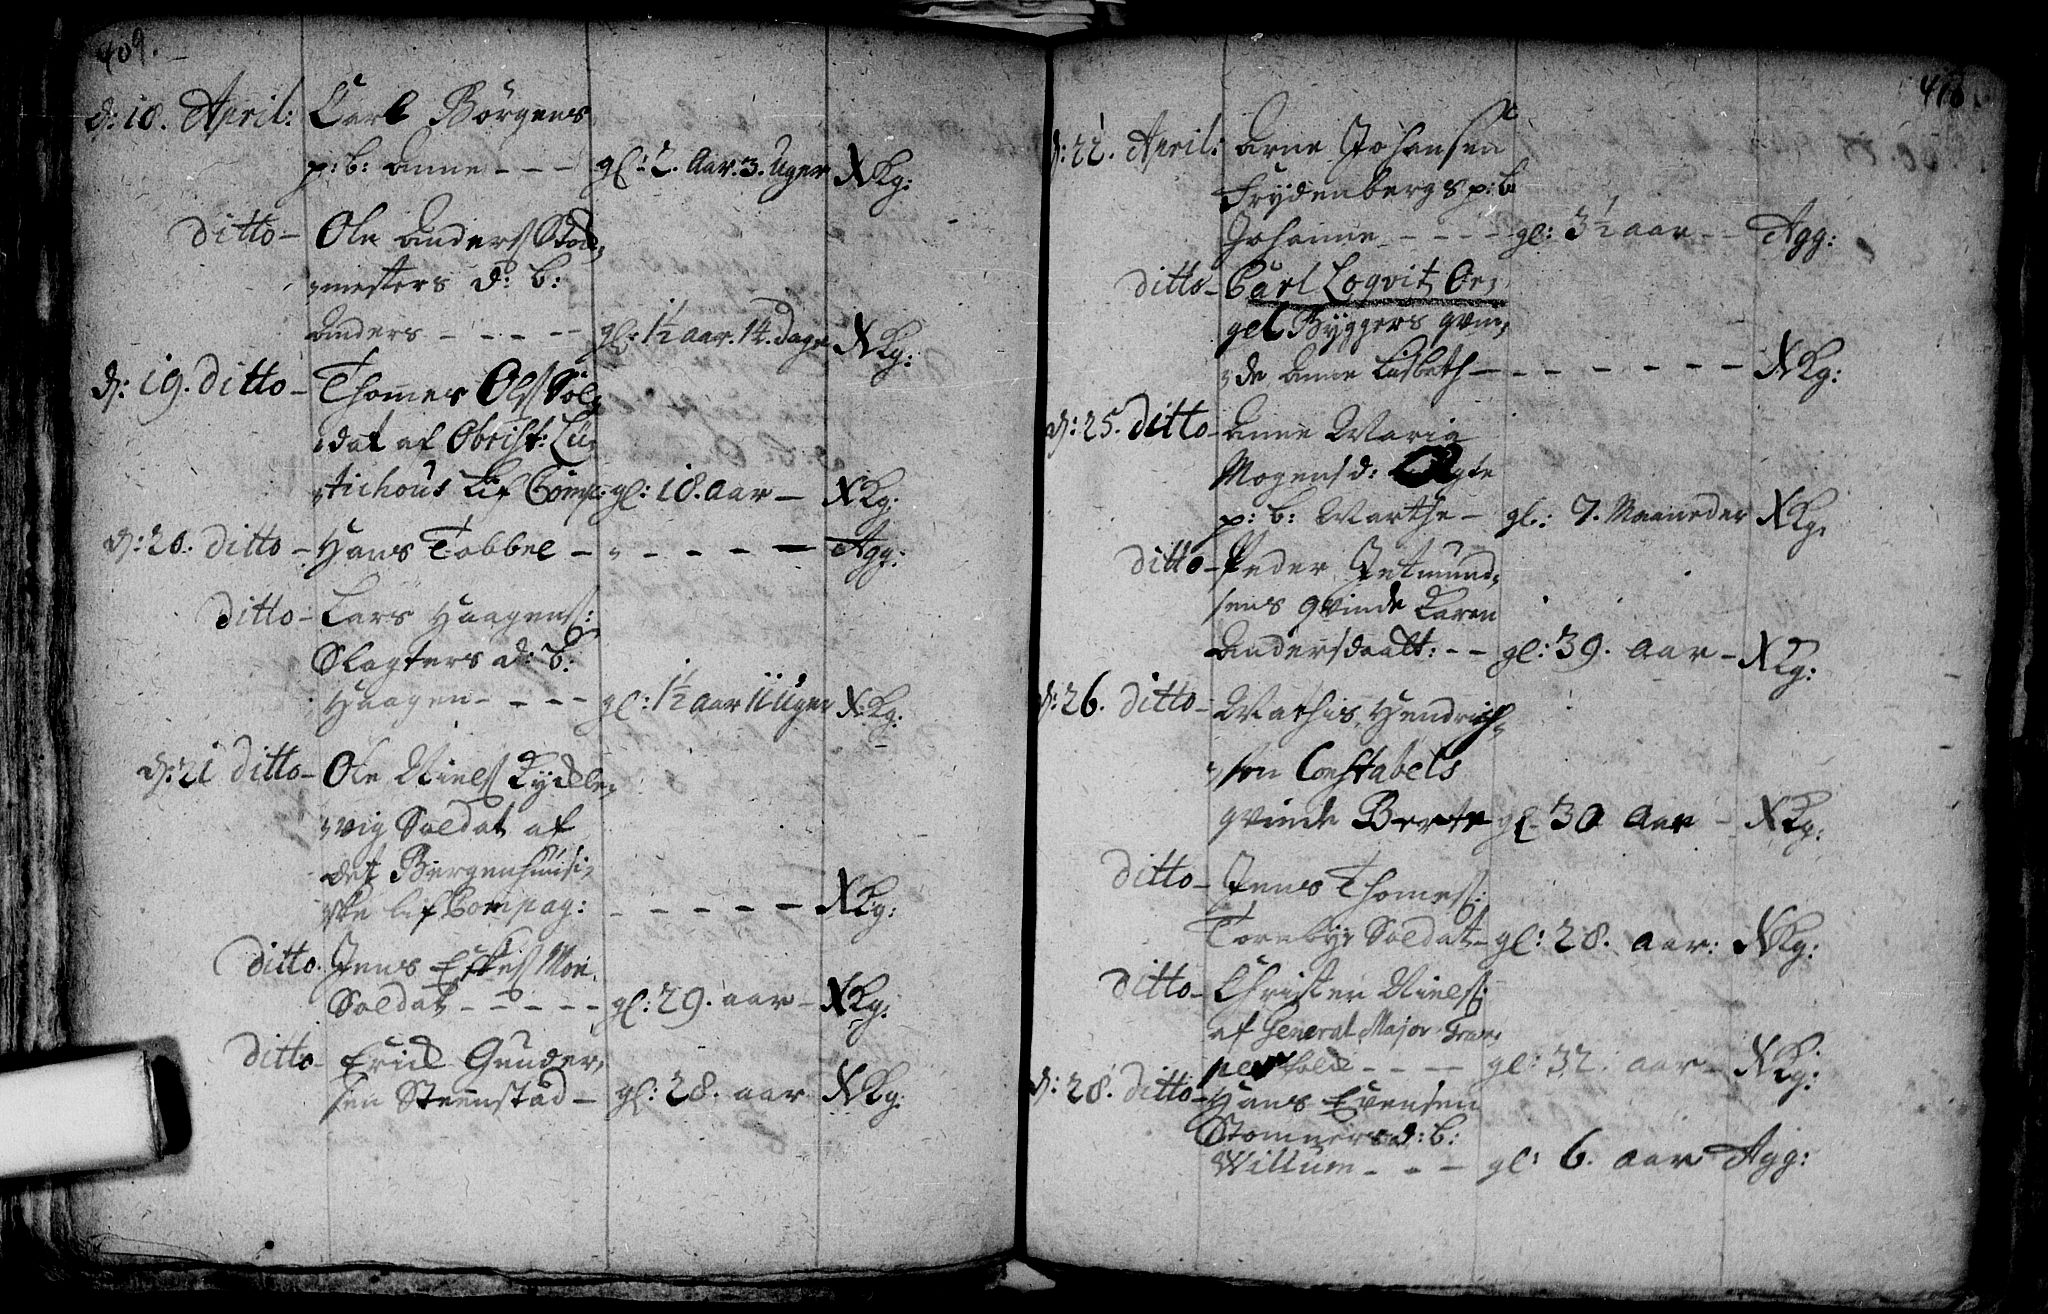 409.
d: 10. April: Carl Börgens
p: b: Anne - - - gl: 2. Aar. 3. Uger X Kg:
ditto - Ole Anders Stod,
mesters d: b:
Anders - - - - gl: 1½ aar. 14. dage X Kg:
d: 19. ditto - Thomes Ols Sol,
dat af Obrist: Lü,
tichous Lif Comp: gl: 18. aar - X Kg:
d: 20. ditto - Hans Tobbel - - - - - Agg:
ditto - Lars Haagens:
Slagters d: b:
Haagen - - - - gl: 1½ aar 11 Uger X Kg:
d: 21 ditto - Ole Niels
vig Soldat af
det Bergenhuusi,
ske lif Compag: - - - - - X Kg:
ditto. Jens Moe
Soldat - - - - - gl: 29. aar - X Kg:
ditto - Erich Gunder,
sen Steenstad - gl: 28. aar X Kg:
410
d: 22. April: Arne Johansen
Frydenbergs p: b:
Johanne - - - - gl: 3½ aar - - Agg:
ditto - Carl Loqvitz Or,
gel Byggers qvin,
de Anne Lisbeth - - - - - - - X Kg:
d: 25. ditto - Anne Maria
Mogensd:
p: b: Marthe - gl: 7. Maaneder X Kg,
ditto - Peder Jetmund,
sens qvinde Karen
Andersdaatt: - - gl: 39. aar - X Kg:
d: 26. ditto - Mathis Hendrich,
sen Constabels
qvinde Berte gl - 30 aar - X Kg:
ditto - Jens Thomes:
Tornbye Soldat - gl: 28. aar: X Kg:
ditto - Christen Niels:
af General Major
- - - gl: 32. aar - X Kg:
d: 28. ditto - Hans Evensen
d: b:
Willum - - - gl: 6. aar Agg: